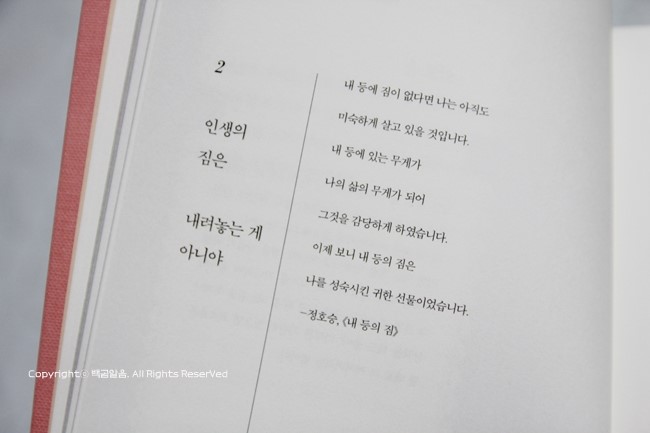 2
인생의
짐은
내려놓는 게
아니야
내 등에 짐이 없다면 나는 아직도
미숙하게 살고 있을 것입니다.
내 등에 있는 무게가
나의 삶의 무게가 되어
그것을 감당하게 하였습니다.
이제 보니 내 등의 짐은
나를 성숙시킨 귀한 선물이었습니다.
–정호승, 《내 등의 짐》
Copyright ⓒ 백곰일슴. All Rights ReserVed